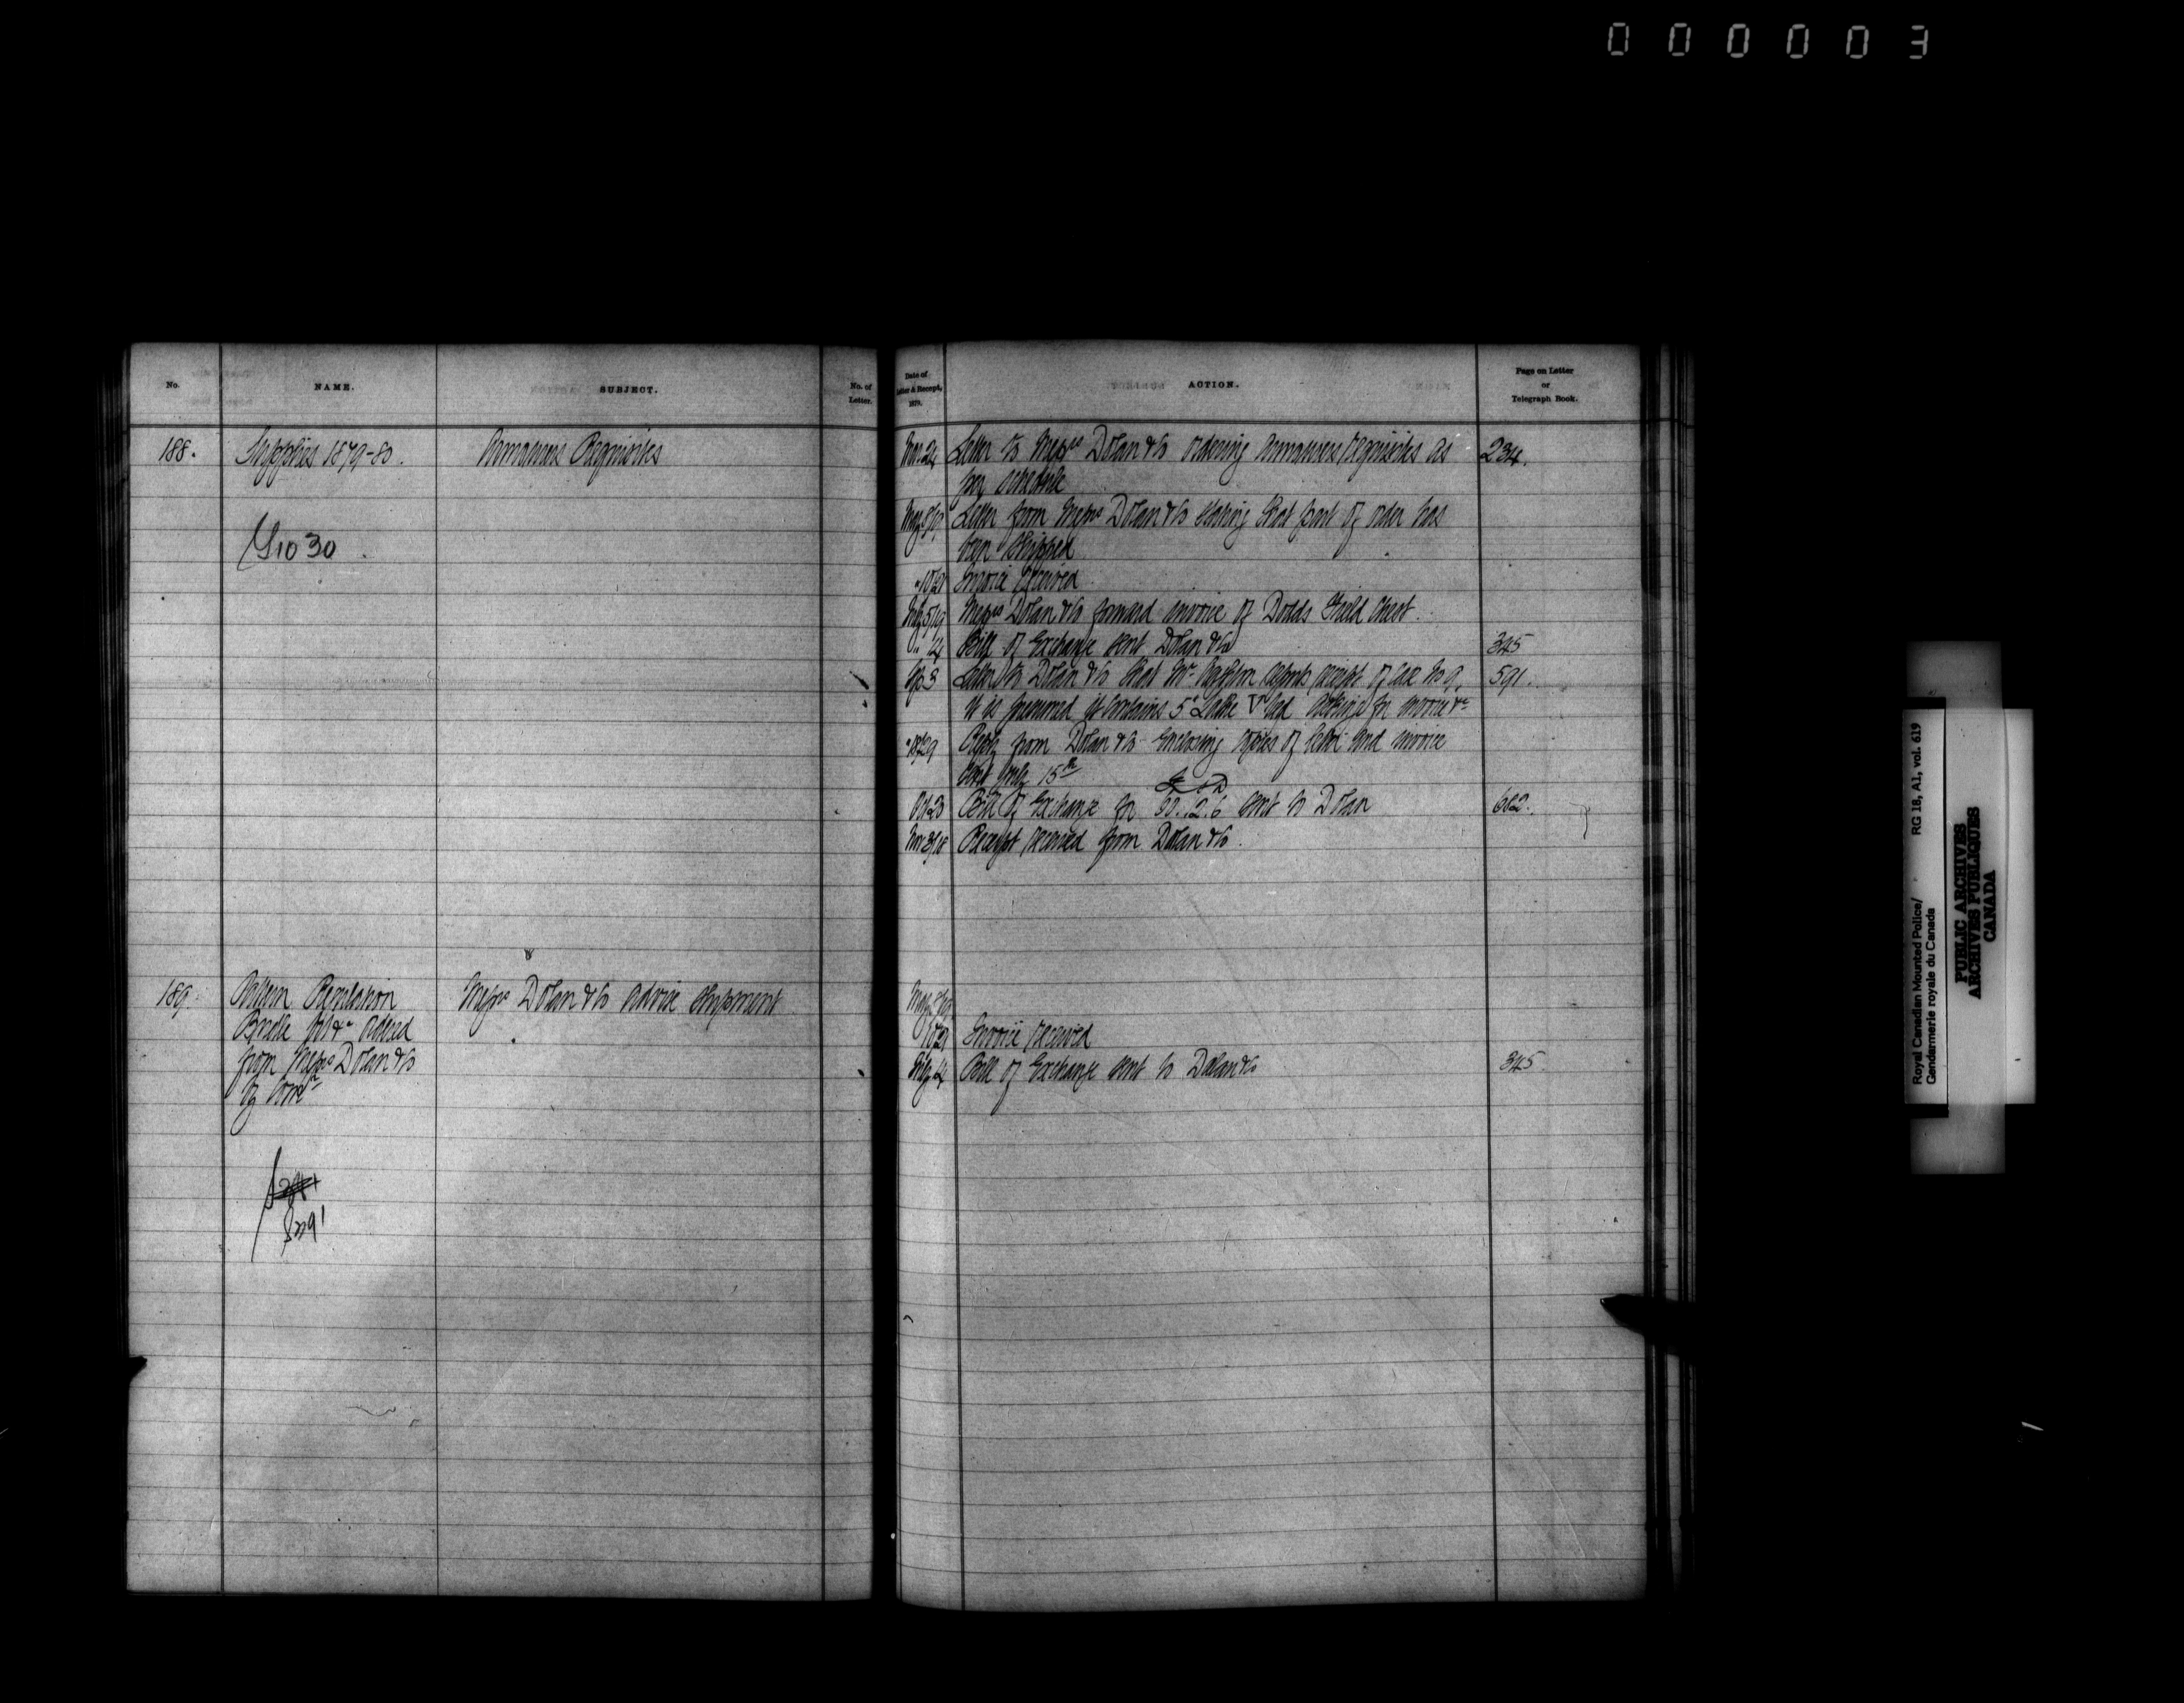 000003
No.
NAME.
SUBJECT.
No. of
Letter.
188.
Supplies 1879-80.
Armourers Requisites
1030
189.
Pattern Regulation
Bridle Bit &c ordered
from Messrs Dolan & Co
by Comr
Messrs Dolan & Co advise shipment
Date of
Letter & Receipt,
1879.
ACTION.
Page on Letter
or
Telegraph Book.
Mar. 24 Letter to Messrs Dolan & Co ordering Armourers requisites as 234.
per schedule
May 8/19 Letter from Messrs Dolan & Co stating that part of order has
been shipped
" 10/21 Invoice received
5/19 Messrs Dolan & Co forward invoice of Dodds Field Chest.
" 4 Bill of Exchange sent Dolan & Co 345
3 Letter to Dolan & Co that Mr reports receipt of case No 9. 591.
it is presumed it contains 5 asking for invoice &c
29 Reply from Dolan & Co enclosing copies of letter and invoice
sent July 15th
Oct 23 Bill of Exchange for 90..12.6 sent to Dolan 682.
Nov 3/18 Receipt received from Dolan & Co.
May 8/19
10/21 Invoice received
4 Bill of Exchange sent to Dolan & Co 345.
Royal Canadian Mounted Police/ RG 18, A1, vol. 619
Gendarmerie royale du Canada
PUBLIC ARCHIVES
ARCHIVES PUBLIQUES
CANADA